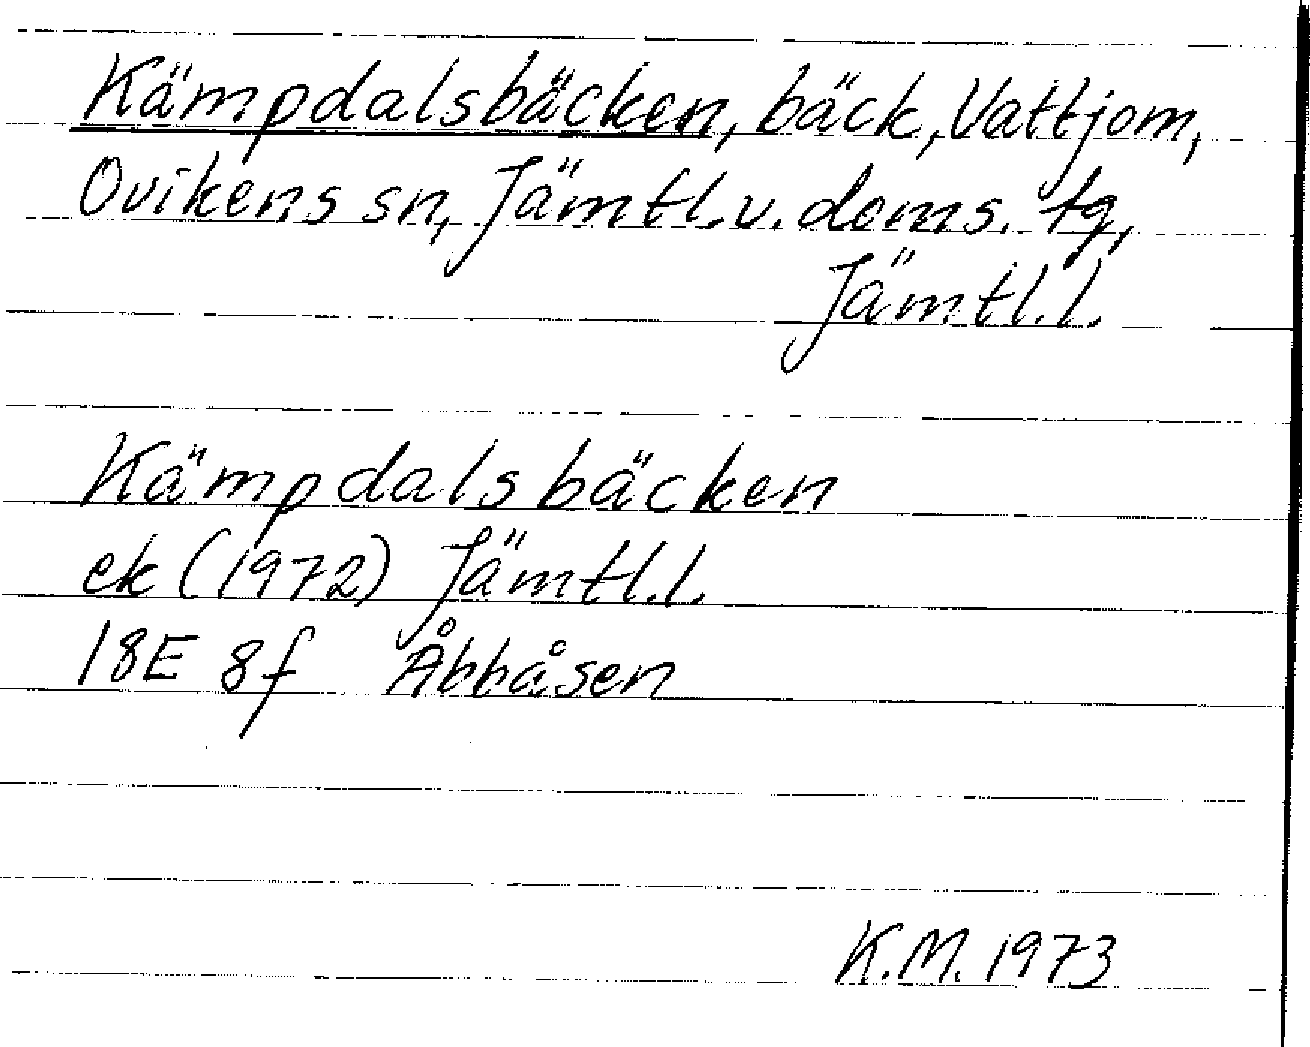 Kämpdalsbäcken, bäck, Vattjom,
Ovikens sn, Jämtl. v. doms. tg,
Jämtl. l.
Kämpdalsbäcken
ek (1972) Jämtl. l.
18E 8f Åbbåsen
K.M. 1973